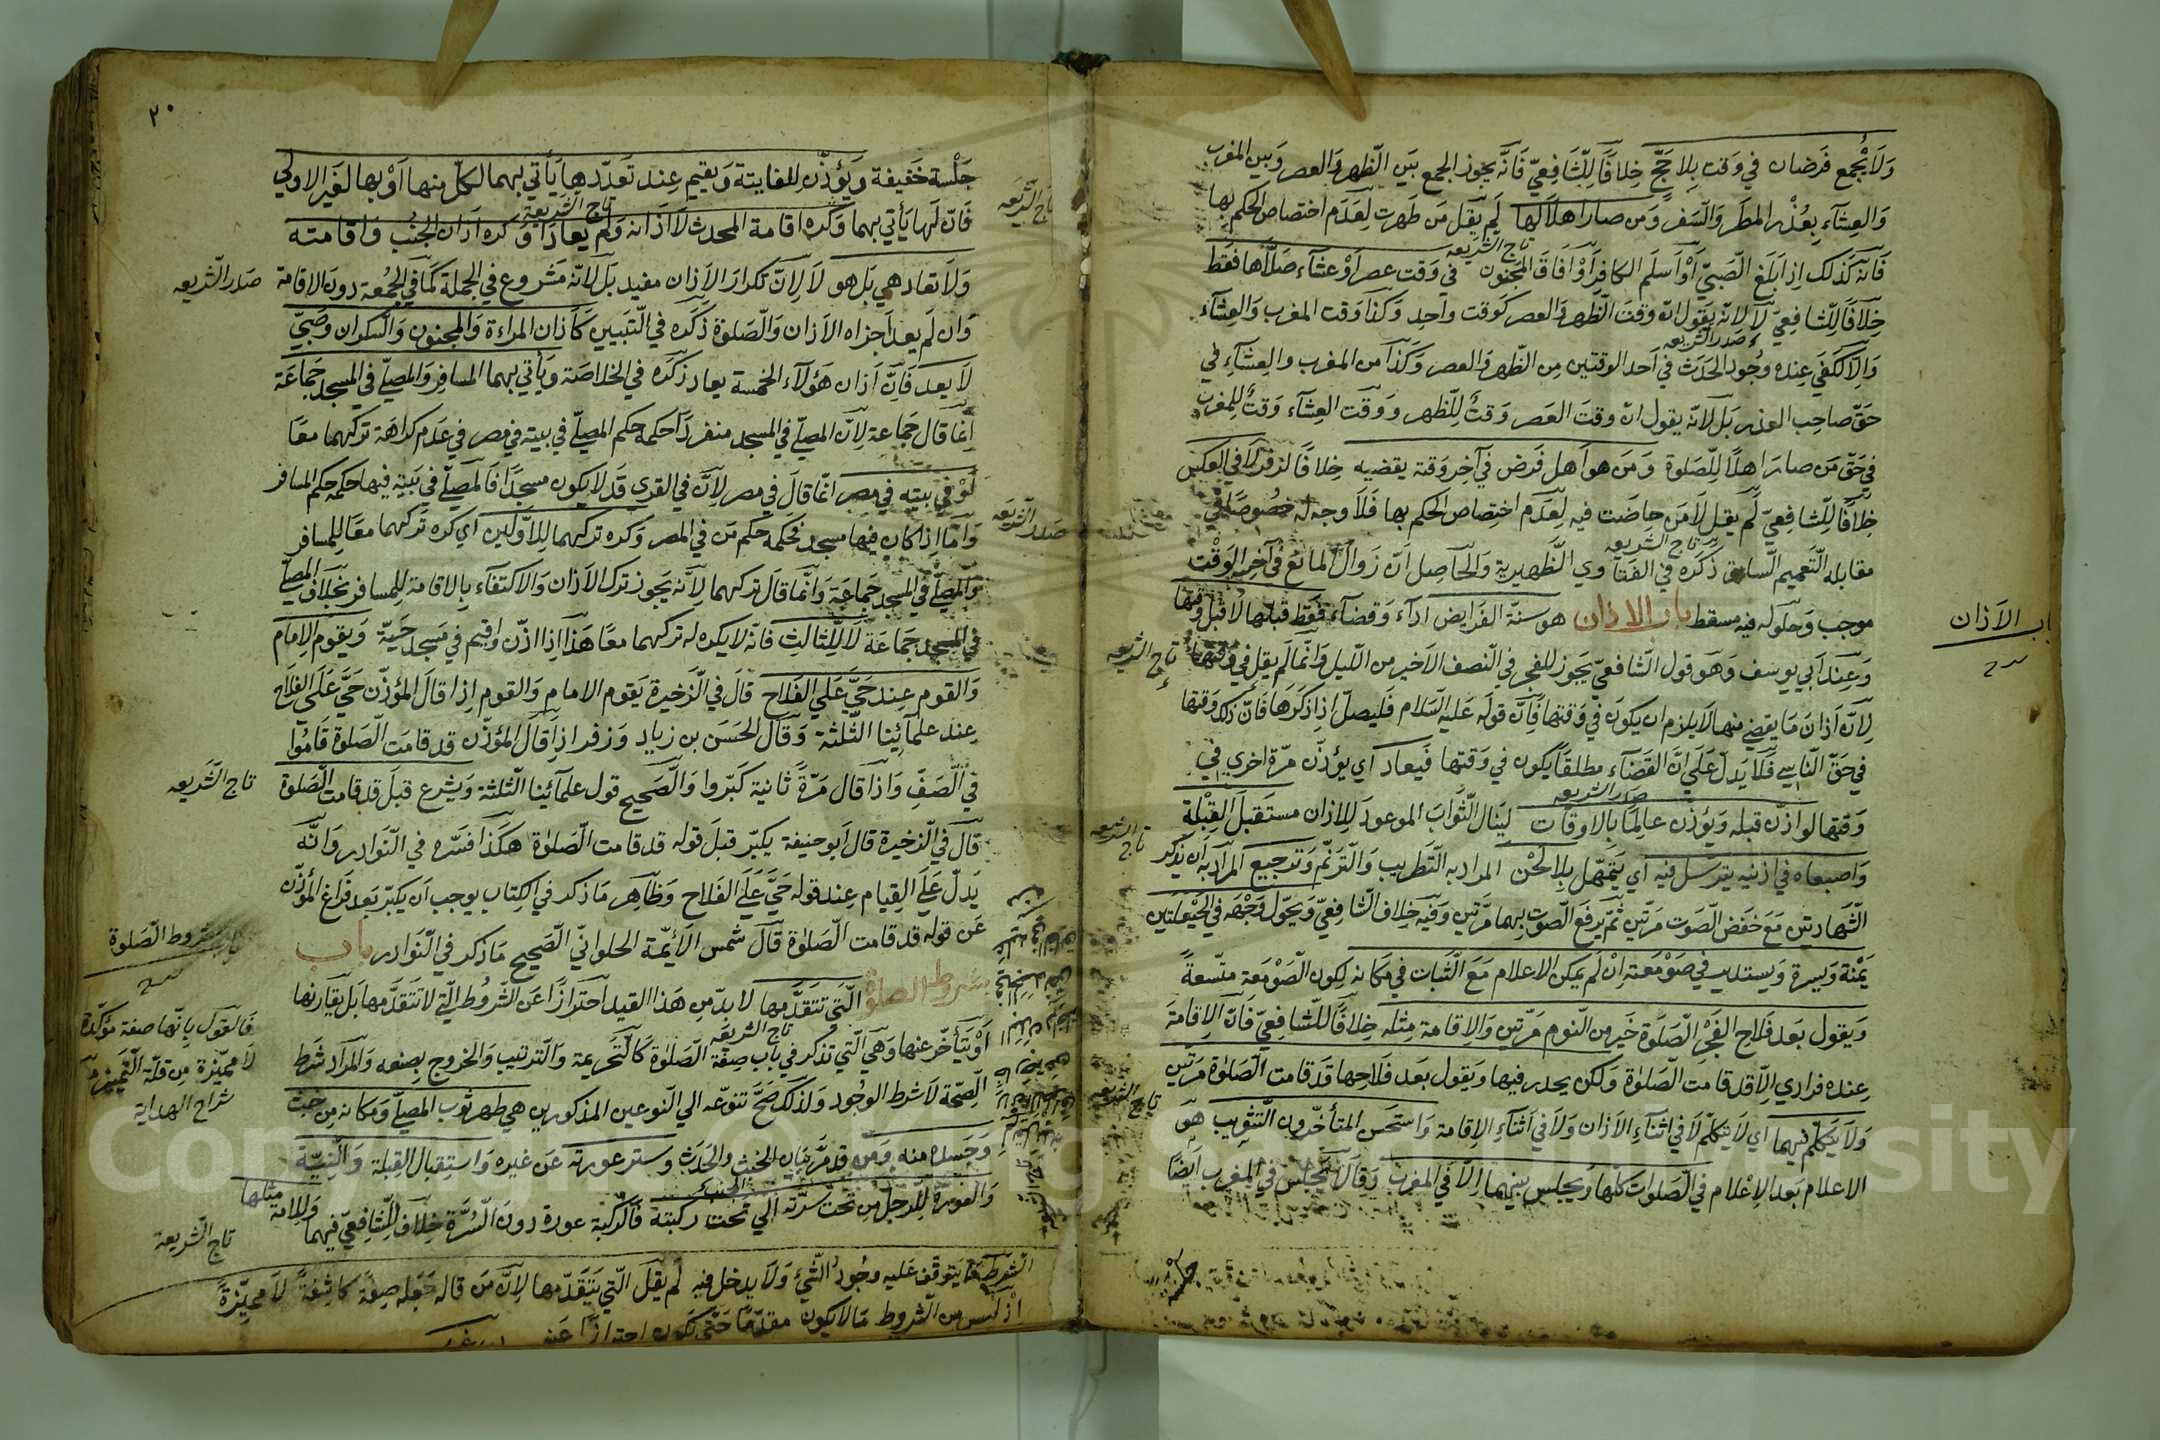 ولا يجمع فرضان في وقت بلا حج خلافا للشافعي فانه يجوز الجمع بين الظهر والعصر وبين المغرب
والعشاء بعذر المطر والسفر ومن صار اهلا لها لم يقل من طهرت لعدم اختصاص الحكم بها
تاج الشريعه
فانه كذلك اذا بلغ الصبي او اسلم الكافر او افاق المجنون في وقت عصر او عشاء صلاها فقط
خلافا للشافعي لا لانه يقول ان وقت الظهر والعصر كوقت واحد وكذا وقت المغرب والعشاء
صدر الشريعه
والا لكفى عنده وجود الحدث في احد الوقتين من الظهر والعصر وكذا من المغرب والعشاء في
حق صاحب العذر بل لانه يقول ان وقت العصر وقت للظهر ووقت العشاء وقت للمغرب
في حق من صار اهلا للصلوة ومن هو اهل فرض في آخر وقته يقضيه خلافا لزفر لا في العكس
خلافا للشافعي لم يقل لا من حاضت فيه لعدم اختصاص الحكم بها فلا وجه له خصوصا في
تاج الشريعه
مقابله التعميم السابق ذكره في الفتاوي الظهيرية والحاصل ان زوال المانع في آخر الوقت
موجب وحلوله فيه مسقط باب الاذان هو سنة الفرايض اداء وقضاء فقط قبلها لا قبل وقتها
باب الاذان
وعند ابي يوسف وهو قول الشافعي يجوز للفجر في النصف الاخير من الليل وانما لم يقل في وقتها
تاج الشريعه
لان اذان ما يقضي منها لا يلزم ان يكون في وقتها فان قوله عليه السلام فليصل اذا ذكرها فان ذلك وقتها
في حق الناسي فلا يدل على ان القضاء مطلقا يكون في وقتها فيعاد اي يؤذن مرة اخري في
صدر الشريعه
وقتها لو اذن قبله ويؤذن عالما بالاوقات لينال الثواب الموعود للاذان مستقبل القبلة
تاج الشريعه
واصبعاه في اذنيه يترسل فيه اي يتمهل بلا لحن المراد به التطريب والترنم وترجيع المراد به ان يذكر
الشهادتين مع خفض الصوت مرتين ثم يرفع الصوت بهما مرتين وفيه خلاف الشافعي ويحول وجهه في الحيعلتين
يمنة ويسرة ويستدير في صومعته ان لم يمكن الاعلام مع الثبات في مكانه لكون الصومعة متسعة
ويقول بعد فلاح الفجر الصلوة خير من النوم مرتين والاقامة مثله خلافا للشافعي فان الاقامة
عنده فرادي الا قد قامت الصلوة ولكن يحدر فيها ويقول بعد فلاحها قد قامت الصلوة مرتين
تاج الشريعه
ولا يتكلم فيهما اي لا يتكلم لا في اثناء الاذان ولا في اثناء الاقامة واستحسن المتأخرون التثويب هو
الاعلام بعد الاعلام في الصلوات كلها ويجلس بينهما الا في المغرب وقالا يجلس في المغرب ايضا
جلسة
٢٠
جلسة خفيفة ويؤذن للفايتة ويقيم عند تعددها يأتي بهما لكل منها او بها لغير الاولي
تاج الشريعه
فان لها يأتي بهما وكره اقامة المحدث لا اذانه ولم يعادا وكره اذان الجنب واقامته
ولا تعاد هي بل هو لا لان تكرار الاذان مفيد بل لانه مشروع في الجملة كما في الجمعة دون الاقامة
صدر الشريعه
وان لم يعد اجزاه الاذان والصلوة ذكره في التبيين كاذان المراءة والمجنون والسكران وصبي
لا يعد فان اذان هؤلاء الخمسة يعاد ذكره في الخلاصة ويأتي بهما المسافر والمصلي في المسجد جماعة
انما قال جماعة لان المصلي في المسجد منفردا حكمه حكم المصلي في بيته في مصر في عدم كراهة تركهما معا
او في بيته في مصر انما قال في مصر لان في القري قد لا يكون مسجدا فالمصلي في بيته فيها حكمه حكم المسافر
صدر الشريعه
واما اذا كان فيها مسجد فحكمه حكم من في المصر وكره تركهما للاولين اي كره تركهما معا للمسافر
والمصلي في المسجد جماعة وانما قال تركهما لانه يجوز ترك الاذان والاكتفاء بالاقامة للمسافر بخلاف المصلي
في المسجد جماعة لا للثالث فانه لا يكره له تركهما معا هذا اذا اذن واقيم في مسجد حيه ويقوم الامام
والقوم عند حي على الفلاح قال في الذخيرة يقوم الامام والقوم اذا قال المؤذن حي على الفلاح
عند علمائنا الثلثة وقال الحسن بن زياد وزفر اذا قال المؤذن قد قامت الصلوة قاموا
في الصف واذا قال مرة ثانية كبروا والصحيح قول علمائنا الثلثة ويشرع قبل قد قامت الصلوة
تاج الشريعه
قال في الذخيرة قال ابو حنيفة يكبر قبل قوله قد قامت الصلوة هكذا فسره في النوادر وانه
يدل على القيام عند قوله حي على الفلاح وظاهر ما ذكر في الكتاب يوجب ان يكبر بعد فراغ المؤذن
عن قوله قد قامت الصلوة قال شمس الائمة الحلواني الصحيح ما ذكر في النوادر باب
باب شروط الصلوة
شروط الصلوة التي تتقدمها لا بد من هذا القيد احترازا عن الشروط التي لا تتقدمها بل يقارنها
تاج الشريعه
او يتأخر عنها وهي التي تذكر في باب صفة الصلوة كالتحريمة والترتيب والخروج بصنعه والمراد شرط
الصحة لا شرط الوجود ولذلك صح تنوعه الي النوعين المذكورين هي طهر ثوب المصلي ومكانه من خبث
وجسده منه ومن قد مر بيان الخبث والحدث وستر عورته عن غيره واستقبال القبلة والنية
والعورة للرجل من تحت سرته الي تحت ركبته فالركبة عورة دون السرة خلافا للشافعي فيهما وللامة مثلها
تاج الشريعه
فالقول بانها صفة مؤكدة
لا مميزة من قلة التمييز
شراح الهداية
الشرط ما يتوقف عليه وجود الشئ ولا يدخل فيه لم يقل التي يتقدمها لان من قاله جعله صفة كاشفة لا مميزة
اذ ليس من الشروط ما لا يكون مقدما حتى يكون احترازا عنه
Copyright © King Saud University